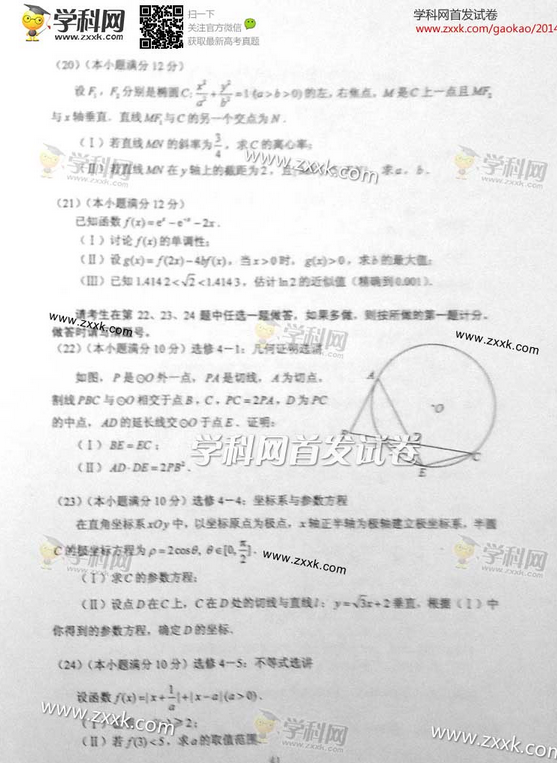 学科网
WWW.ZXXK.COM
扫一下
关注官方微信
获取最新高考真题
学科网首发试卷
www.zxxk.com/gaokao/2014
(20)(本小题满分 12 分)
设 F₁，F₂ 分别是椭圆 C: x²/a² + y²/b² = 1 (a > b > 0) 的左，右焦点，M 是 C 上一点且 MF₂
与 x 轴垂直．直线 MF₁ 与 C 的另一个交点为 N．
(Ⅰ) 若直线 MN 的斜率为 3/4，求 C 的离心率；
www.zxxk.com
学科网
学科网
(Ⅱ) 若直线 MN 在 y 轴上的截距为 2，且 求 a，b．
(21)(本小题满分 12 分)
已知函数 f(x) = eˣ − e⁻ˣ − 2x．
(Ⅰ) 讨论 f(x) 的单调性；
(Ⅱ) 设 g(x) = f(2x) − 4bf(x)，当 x > 0 时，g(x) > 0，求 b 的最大值；
(Ⅲ) 已知 1.4142 < √2 < 1.4143，估计 ln 2 的近似值 (精确到 0.001)．
请考生在第 22、23、24 题中任选一题做答，如果多做，则按所做的第一题计分，
www.zxxk.com
学科网
www.zxxk.com
做答时请写 题号．
(22)(本小题满分 10 分) 选修 4－1：几何证明选讲
如图，P 是⊙O 外一点，PA 是切线，A 为切点，
割线 PBC 与⊙O 相交于点 B，C，PC = 2PA，D 为 PC
的中点，AD 的延长线交⊙O 于点 E．证明：
(Ⅰ) BE = EC；
(Ⅱ) AD · DE = 2PB²．
A
O
C
E
学科网首发试卷
(23)(本小题满分 10 分) 选修 4－4：坐标系与参数方程
在直角坐标系 xOy 中，以坐标原点为极点，x 轴正半轴为极轴建立极坐标系，半圆
C 的极坐标方程为 ρ = 2cosθ, θ∈[0, π/2]．
学科网
www.zxxk.com
学科网
(Ⅰ) 求 C 的参数方程；
(Ⅱ) 设点 D 在 C 上，C 在 D 处的切线与直线 l：y = √3x + 2 垂直，根据 (Ⅰ) 中
你得到的参数方程，确定 D 的坐标．
(24)(本小题满分 10 分) 选修 4－5：不等式选讲
设函数 f(x) = |x + 1/a| + |x − a| (a > 0)．
www.zxxk.com
(Ⅰ) ≥ 2；
学科网
www.zxxk.com
(Ⅱ) 若 f(3) < 5，求 a 的取值范围．